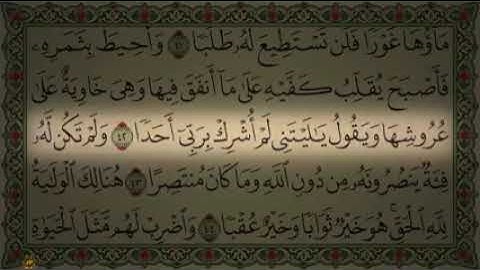 مَآؤُهَا غَوْرًا فَلَن تَسْتَطِيعَ لَهُۥ طَلَبًا ٤١ وَأُحِيطَ بِثَمَرِهِۦ
فَأَصْبَحَ يُقَلِّبُ كَفَّيْهِ عَلَىٰ مَآ أَنفَقَ فِيهَا وَهِىَ خَاوِيَةٌ عَلَىٰ
عُرُوشِهَا وَيَقُولُ يَٰلَيْتَنِى لَمْ أُشْرِكْ بِرَبِّىٓ أَحَدًا ٤٢ وَلَمْ تَكُن لَّهُۥ
فِئَةٌ يَنصُرُونَهُۥ مِن دُونِ ٱللَّهِ وَمَا كَانَ مُنتَصِرًا ٤٣ هُنَالِكَ ٱلْوَلَٰيَةُ
لِلَّهِ ٱلْحَقِّ ۚ هُوَ خَيْرٌ ثَوَابًا وَخَيْرٌ عُقْبًا ٤٤ وَٱضْرِبْ لَهُم مَّثَلَ ٱلْحَيَوٰةِ